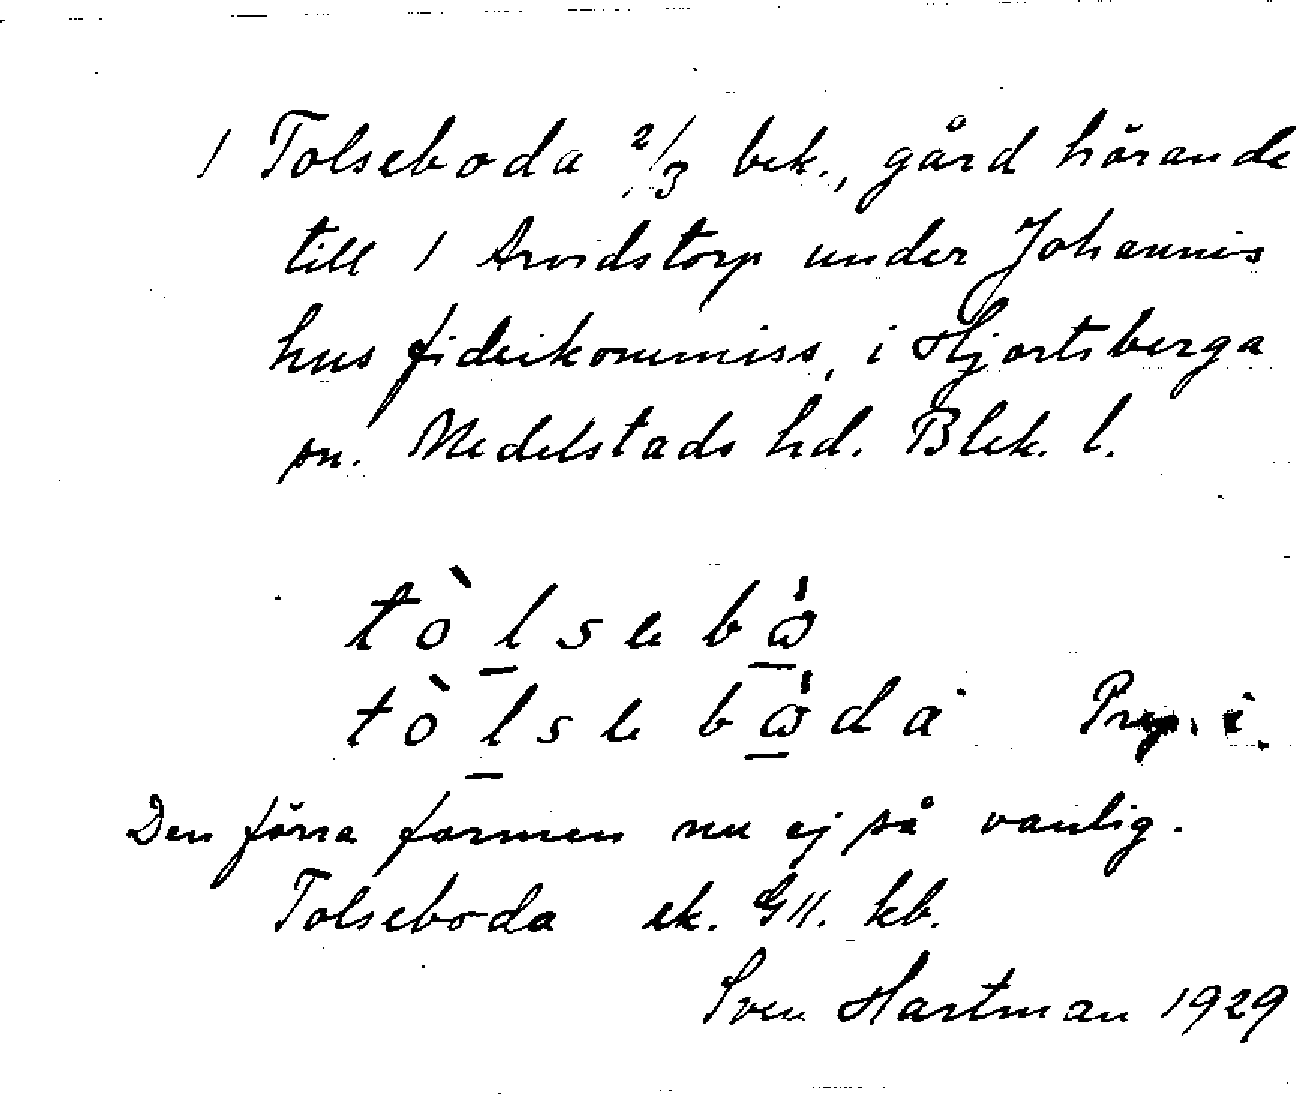 1 Tolseboda 2/3 bek., gård hörande
till 1 Arvidstorp under Johannis
hus fideikommiss, i Hjortsberga
sn. Medelstads hd. Blek. l.
tòlsebå̍
tòlsebå̍da Prep. i.
Den förra formen nu ej så vanlig.
Tolseboda ek. GII. kb.
Sven Hartman 1929